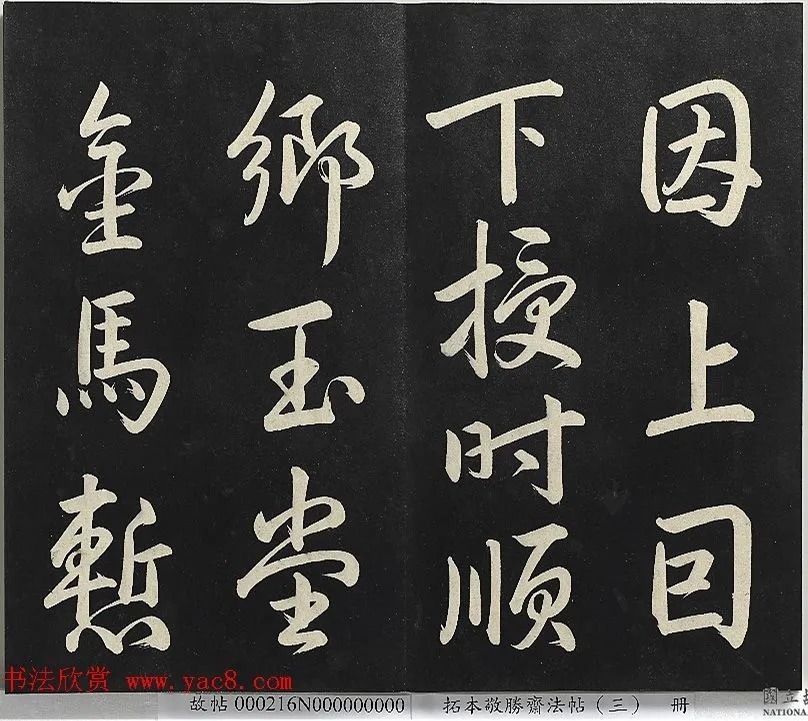 因上回
下授时顺
鄉玉堂
金馬慙
书法欣赏 www.yac8.com
故帖 000216N000000000 拓本敬勝齋法帖（三） 册
國立
NATIONA